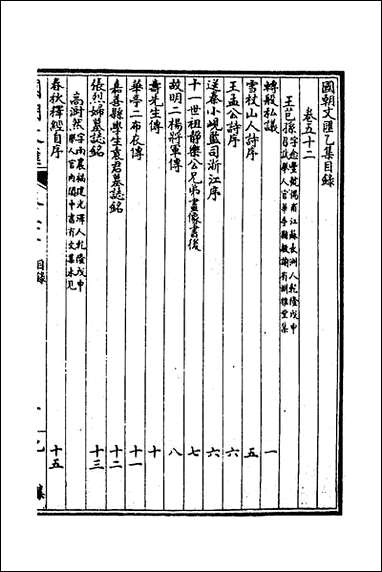 國朝文匯乙集目錄
卷五十二
王芑孫字念豐號惕甫江蘇長洲人乾隆戊申召試舉人官華亭縣教諭有淵雅堂集
轉般私議 一
雪杖山人詩序 五
王孟公詩序 六
送秦小峴監司浙江序 六
十一世祖靜樂公兄弟畫像書後 七
故明二楊將軍傳 八
壽先生傳 十
華亭二布衣傳 十一
嘉善縣學生袁君墓誌銘 十二
張烈婦墓誌銘 十三
高澍然字雨農福建光澤人乾隆戊申舉人官內閣中書有文集未見
春秋釋經自序 十五
目錄
乙集